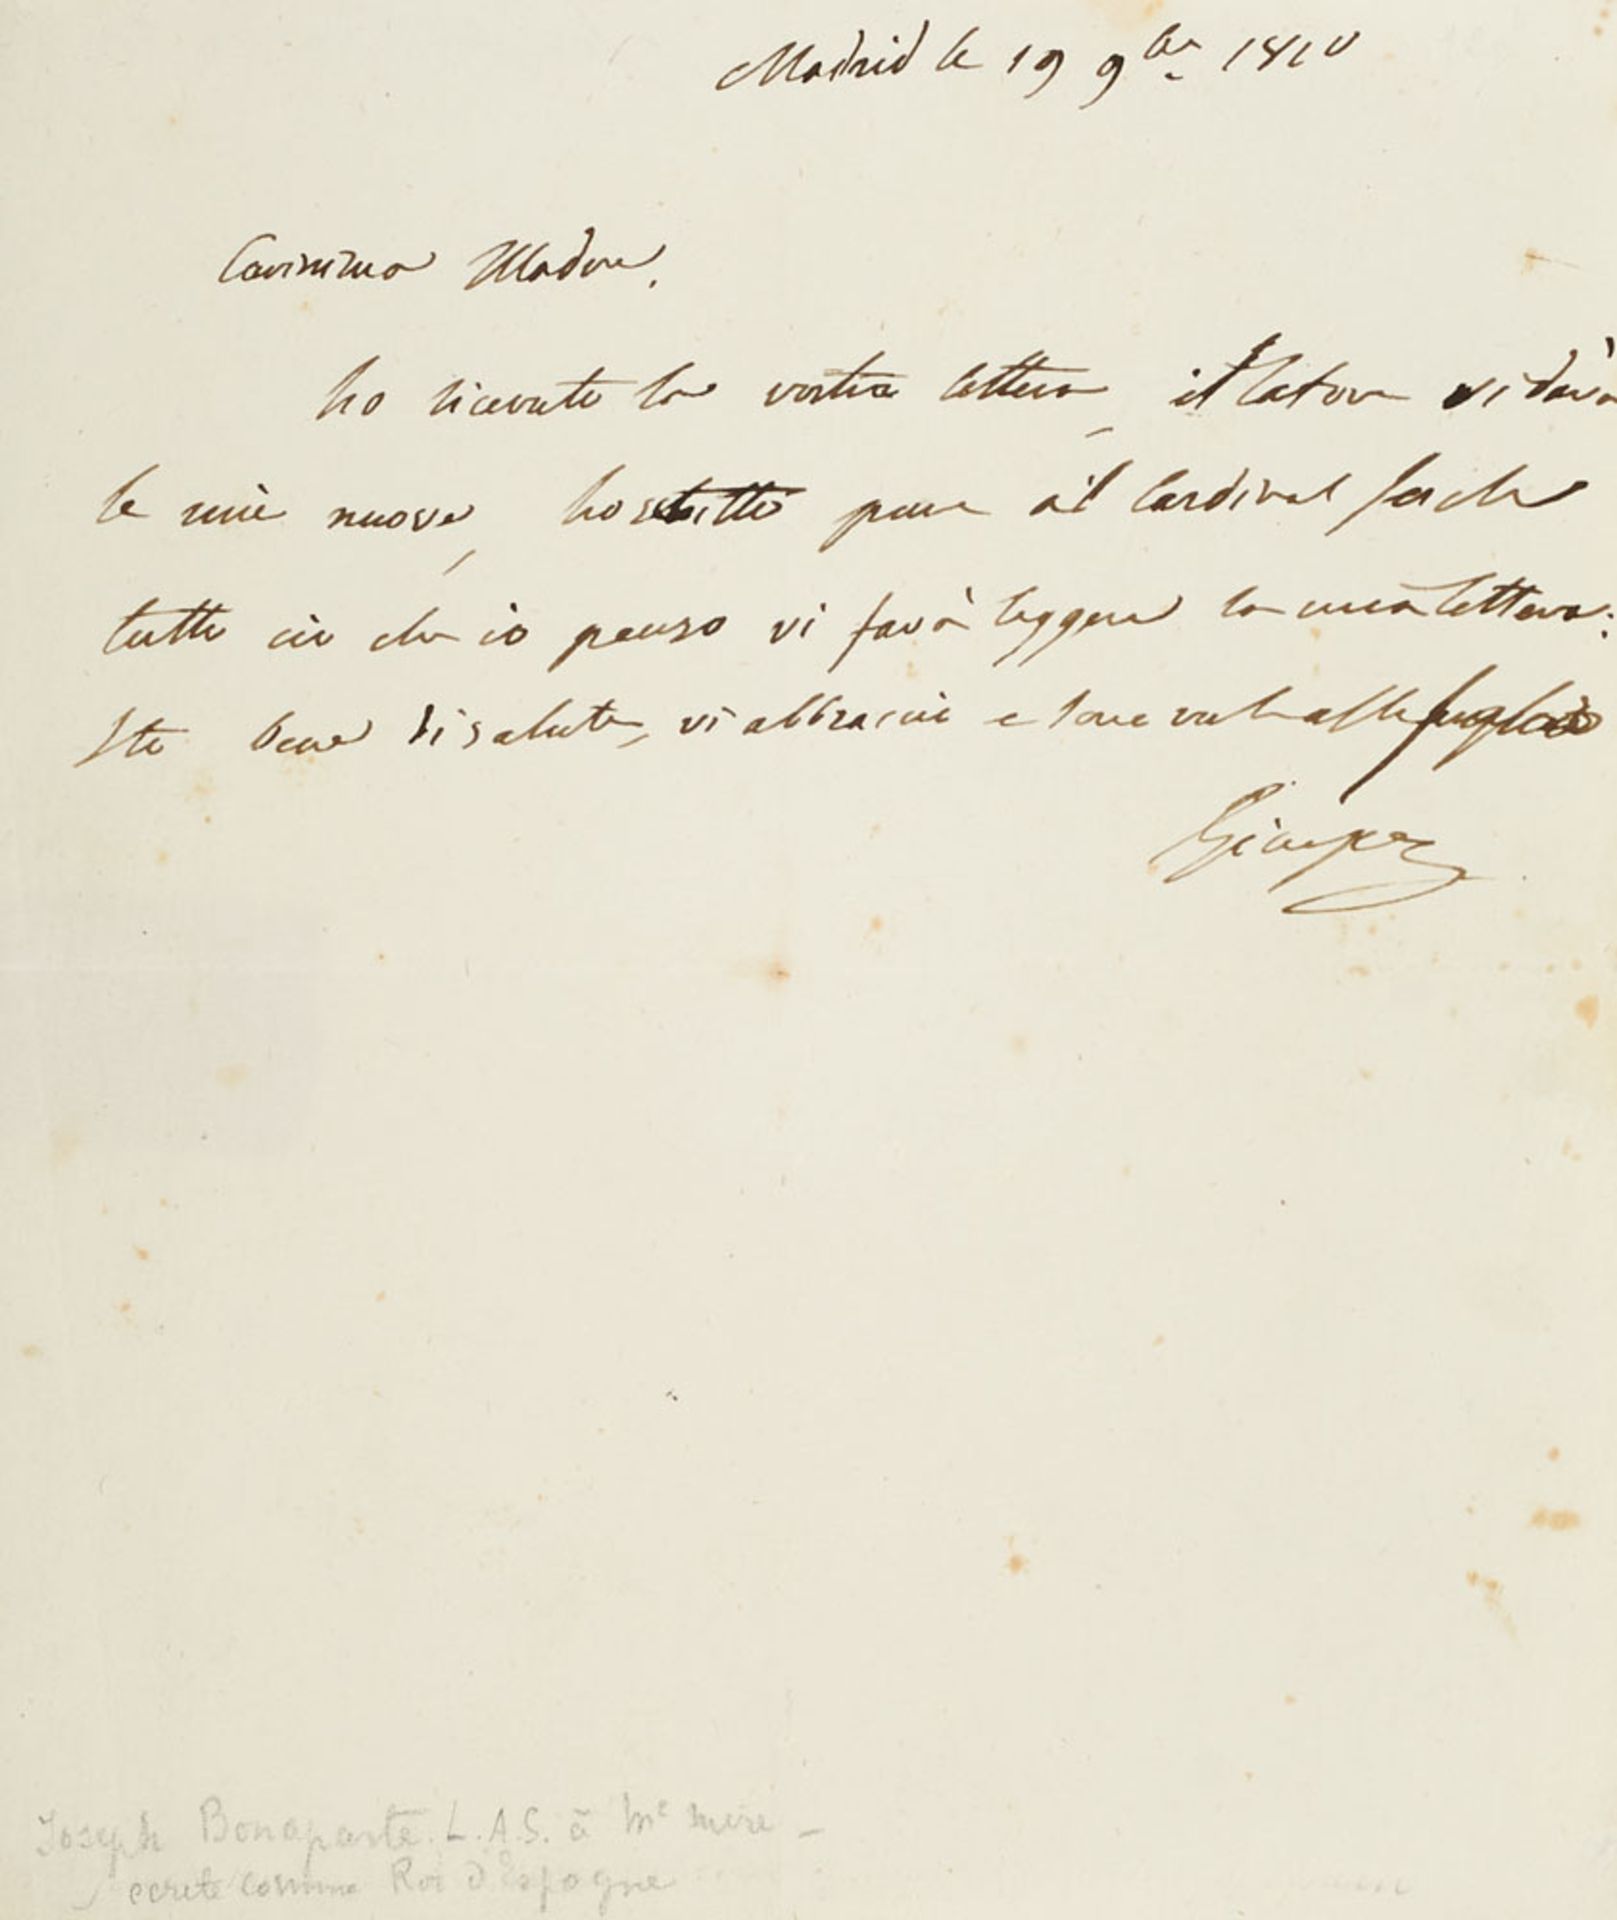 Madrid le 19 9bre 1810
Carissima Madre.
ho ricevuto la vostra lettera, il latore vi darà
le mie nuove, ho scritto pure al Cardinal Fesch
tutto ciò che io penso vi farà leggere la mia lettera:
sto bene di salute, vi abbraccio e sono
Giusepe
Joseph Bonaparte. L.A.S. à Me mère –
écrite comme Roi d'Espagne